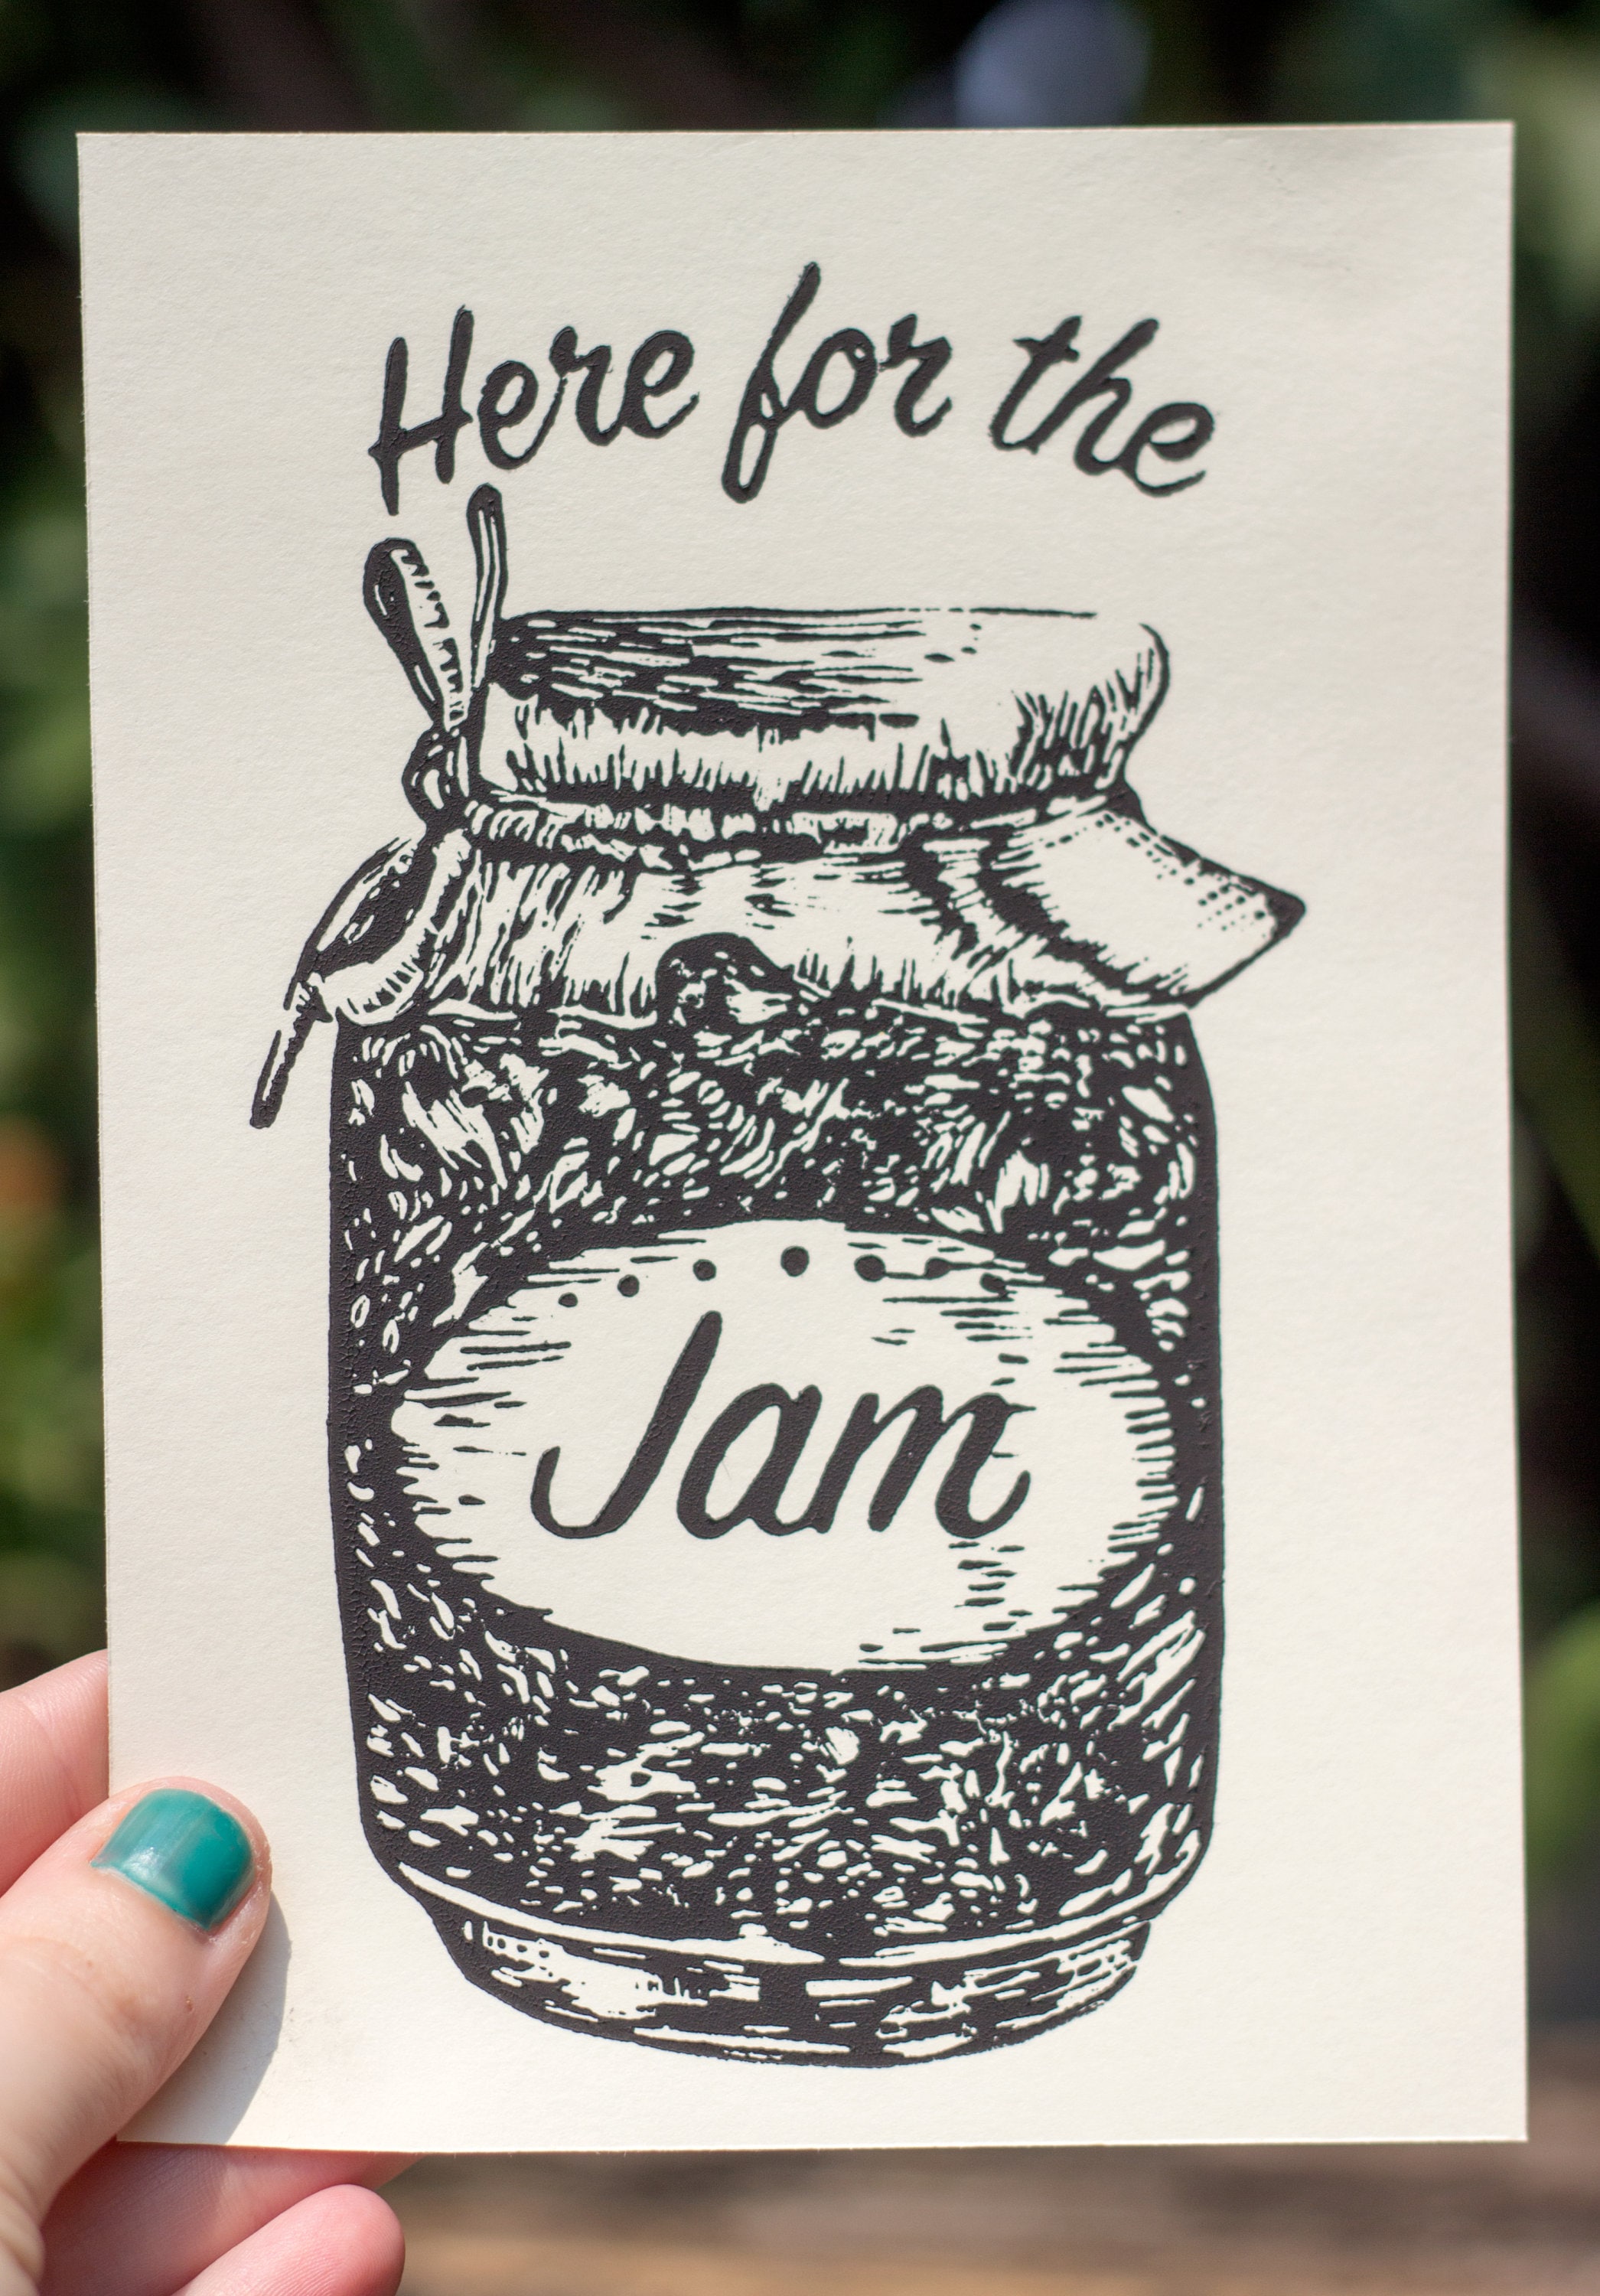 Here for the
Jam